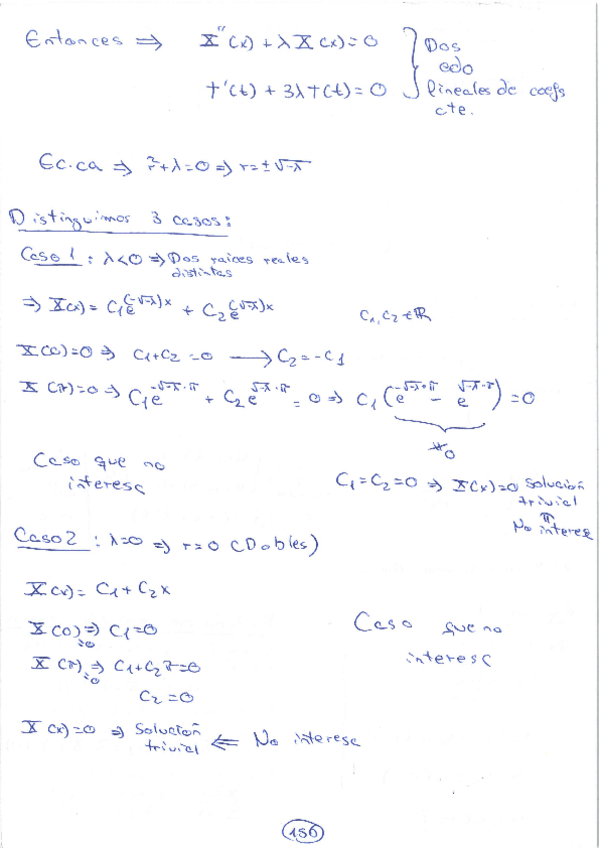 Entonces ⇒ X''(x) + λX(x) = 0 } Dos
edo
T'(t) + 3λT(t) = 0 lineales de coefs
cte.
Ec.ca ⇒ r²+λ=0 ⇒ r=±√-λ
Distinguimos 3 casos:
Caso 1: λ<0 ⇒ Dos raices reales
distintas
⇒ X(x) = C₁e^(-√-λ)x + C₂e^(√-λ)x C₁,C₂ ∈ ℝ
X(0)=0 ⇒ C₁+C₂=0 → C₂=-C₁
X(π)=0 ⇒ C₁e^-√-λ·π + C₂e^√-λ·π = 0 ⇒ C₁(e^-√-λ·π - e^√-λ·π) = 0
≠0
Caso que no
interesa
C₁=C₂=0 ⇒ X(x)=0 Solución
trivial
⇑
No interesa
Caso 2: λ=0 ⇒ r=0 (Dobles)
X(x) = C₁+C₂x
X(0)=0 ⇒ C₁=0
X(π)=0 ⇒ C₁+C₂π=0
C₂=0
Caso que no
interesa
X(x)=0 ⇒ Solución
trivial ⇐ No interesa
156